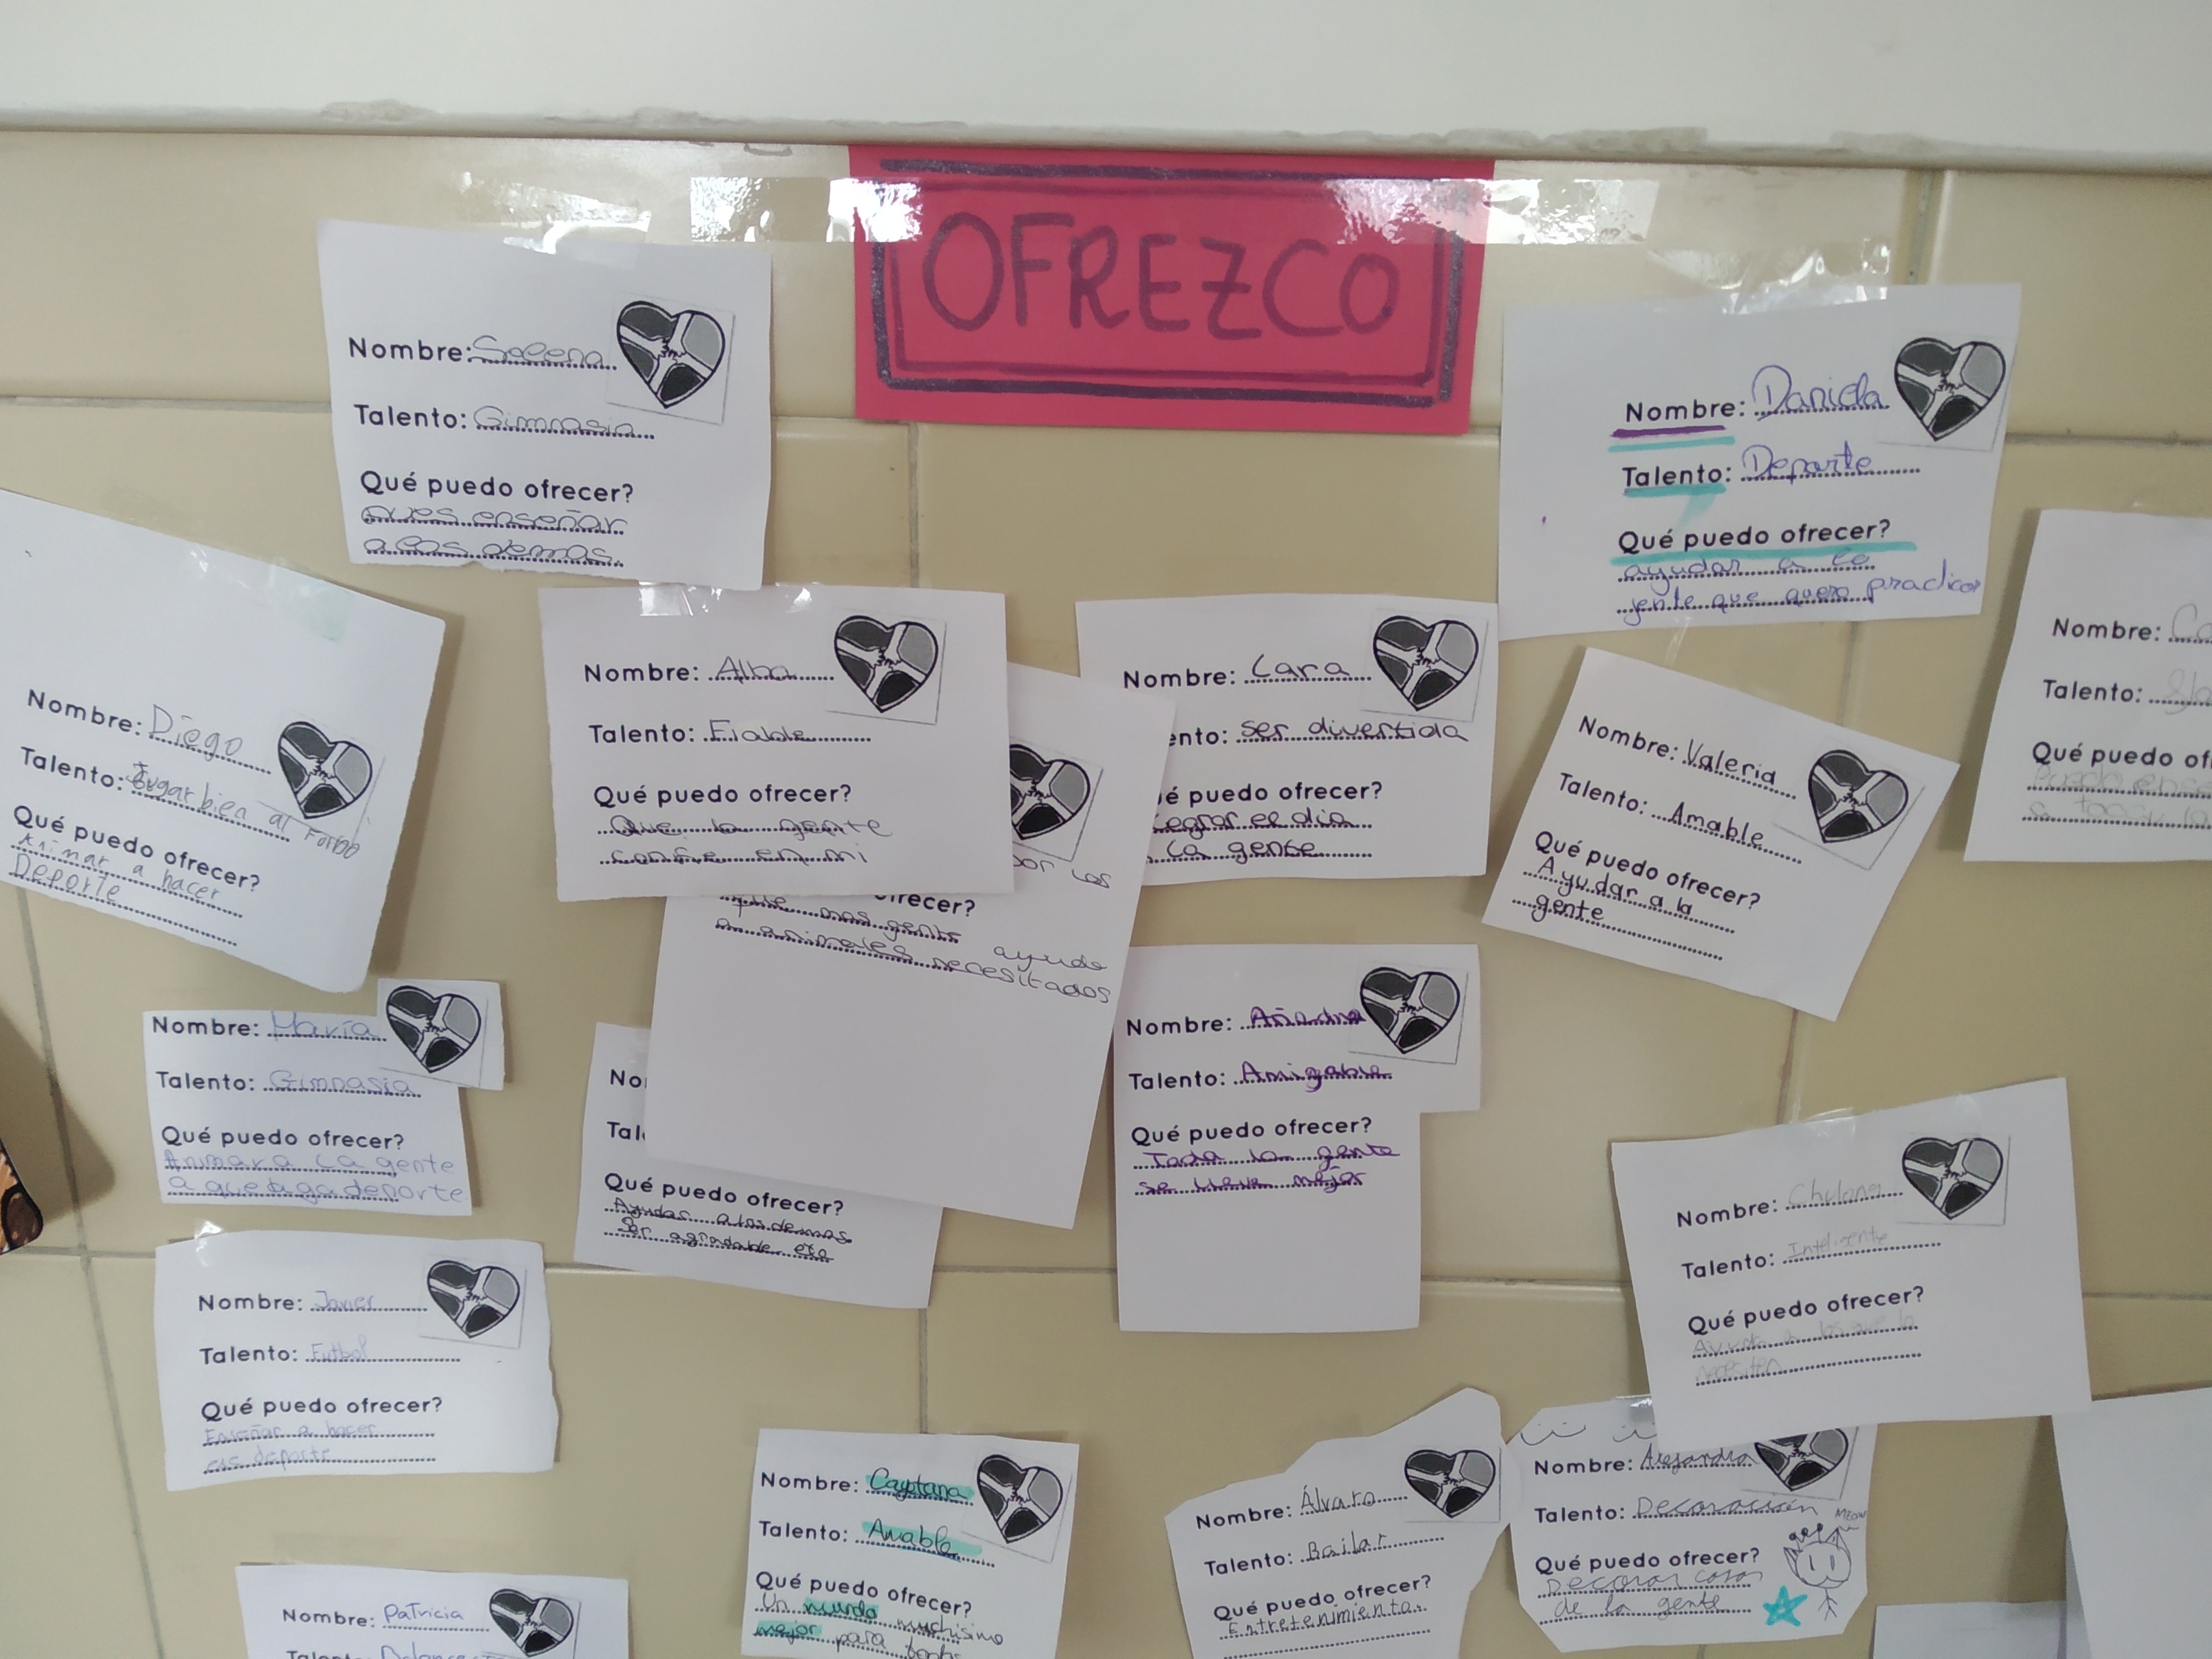 OFREZCO
Nombre: Solena
Talento: Gimnasia
Qué puedo ofrecer?
pues enseñar
a los demas.
Nombre: Daniela
Talento: Deporte
Qué puedo ofrecer?
ayudar a la
jente que quera practicar
Nombre: Diego
Talento: Jugar bien al
Qué puedo ofrecer?
Animar a hacer
Deporte
Nombre: Alba
Talento: Fiable
Qué puedo ofrecer?
Que la gente
confie en mi
Nombre: Lara
ento: ser divertida
é puedo ofrecer?
legrar el dia
la gente
Nombre: Valeria
Talento: Amable
Qué puedo ofrecer?
Ayudar a la
gente
Nombre:
Talento:
Qué puedo of
Puedo
por los
recer?
que mas gente ayude
a animales necesitados
Nombre: María
Talento: Gimnasia
Qué puedo ofrecer?
Animar a la gente
a que aga deporte
No
Tal
Qué puedo ofrecer?
Ayudar a los demas
Ser agradable etc
Nombre: Añadna
Talento: Amigable
Qué puedo ofrecer?
Toda la gente
se lleve mejor
Nombre:
Talento: Inteligente
Qué puedo ofrecer?
Ayuda a los que lo
necesiten
Nombre: Javier
Talento: Futbol
Qué puedo ofrecer?
Enseñar a hacer
ese deporte
Nombre: Cayetana
Talento: Amable
Qué puedo ofrecer?
Un mundo muchisimo
mejor para todos
Nombre: Álvaro
Talento: Bailar
Qué puedo ofrecer?
Entretenimiento.
Nombre: Alejandra
Talento: Decoración
MEOW
Qué puedo ofrecer?
Decorar casas
de la gente
Nombre: Patricia